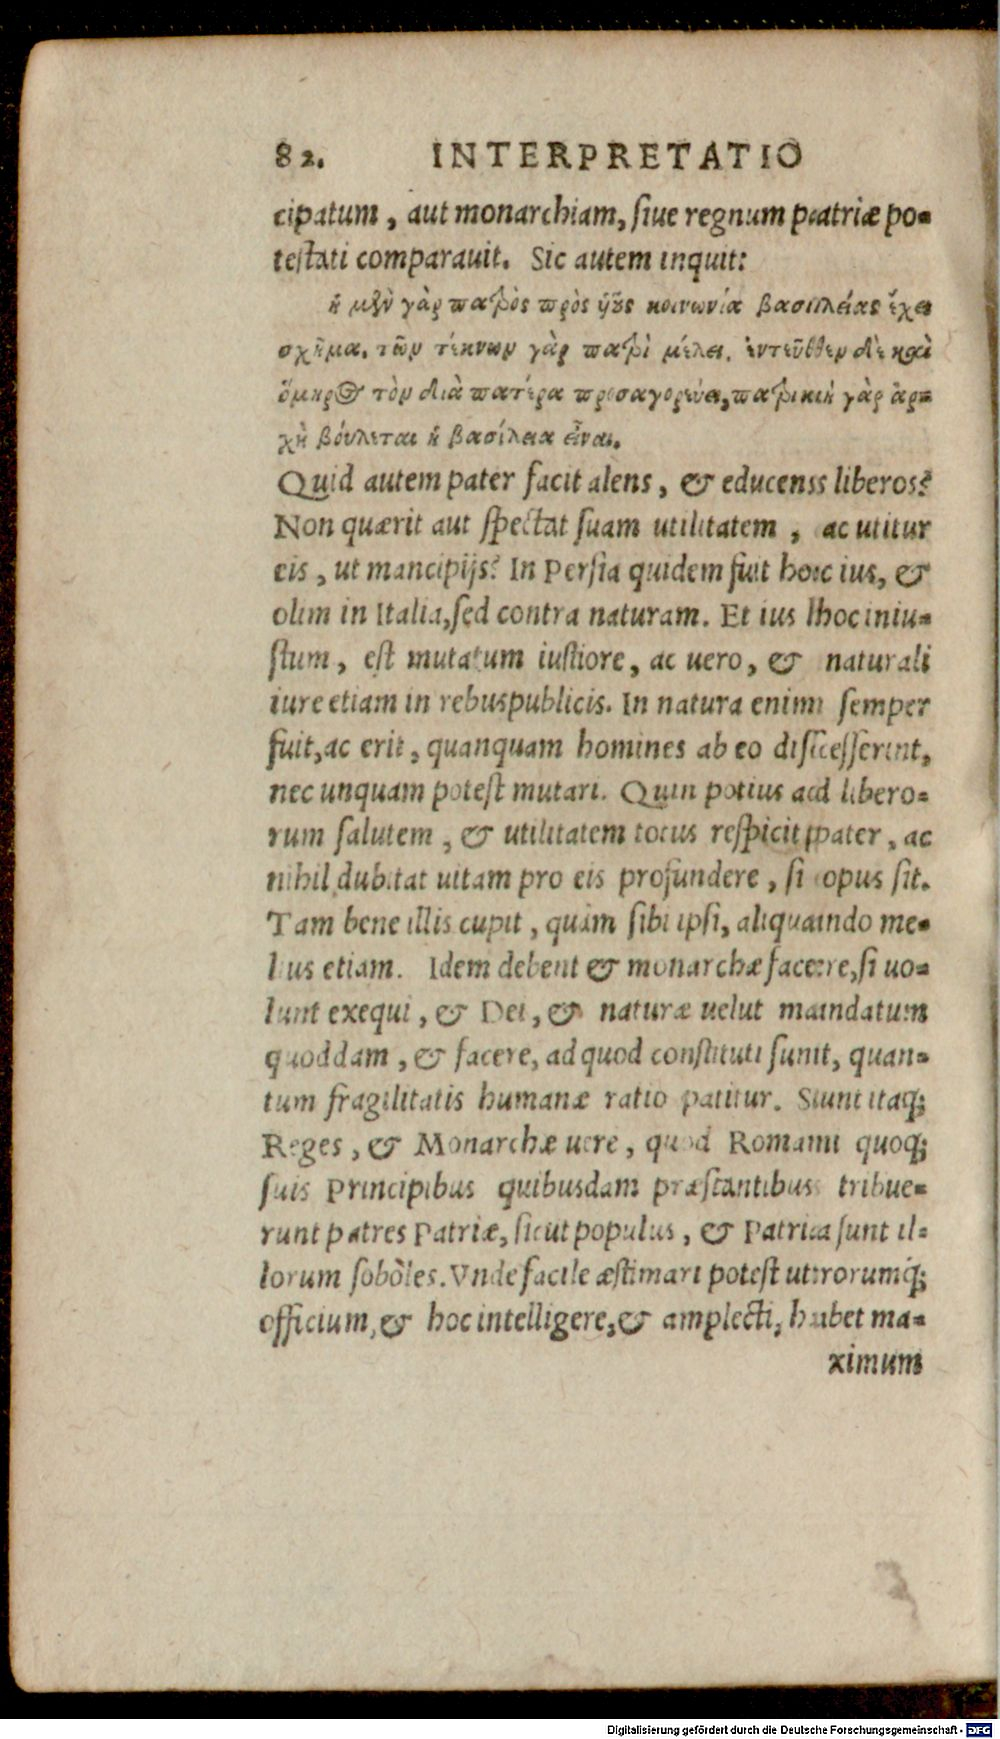 82. INTERPRETATIO
cipatum, aut monarchiam, siue regnum patriæ po-
testati comparauit. Sic autem inquit:
ἡ μὲν γὰρ πατρὸς πρὸς ὑεῖς κοινωνία βασιλείας ἔχει
σχῆμα. τῶν τέκνων γὰρ πατρὶ μέλει. ἐντεῦθεν δὲ καὶ
ὅμηρος τὸν δία πατέρα προσαγορεύει, πατρικὴ γὰρ ἀρ-
χὴ βούλεται ἡ βασίλεια εἶναι.
Quid autem pater facit alens, & educens liberos?
Non quærit aut spectat suam utilitatem, ac utitur
eis, ut mancipijs? In Persia quidem fuit hoc ius, &
olim in Italia, sed contra naturam. Et ius hoc iniu-
stum, est mutatum iustiore, ac uero, & naturali
iure etiam in rebuspublicis. In natura enim semper
fuit, ac erit, quanquam homines ab eo discesserint,
nec unquam potest mutari. Quin potius ad libero-
rum salutem, & utilitatem totus respicit pater, ac
nihil dubitat uitam pro eis profundere, si opus sit.
Tam bene illis cupit, quàm sibi ipsi, aliquando me-
lius etiam. Idem debent & monarchæ facere, si uo-
lunt exequi, & Dei, & naturæ uelut mandatum
quoddam, & facere, ad quod constituti sunt, quan-
tum fragilitatis humanæ ratio patitur. Sunt itaq;
Reges, & Monarchæ uere, quod Romani quoq;
suis Principibus quibusdam præstantibus tribue-
runt patres Patriæ, sicut populus, & Patria sunt il-
lorum sobòles. Vnde facile æstimari potest utrorumq;
officium, & hoc intelligere, & amplecti, habet ma-
ximum
Digitalisierung gefördert durch die Deutsche Forschungsgemeinschaft - DFG